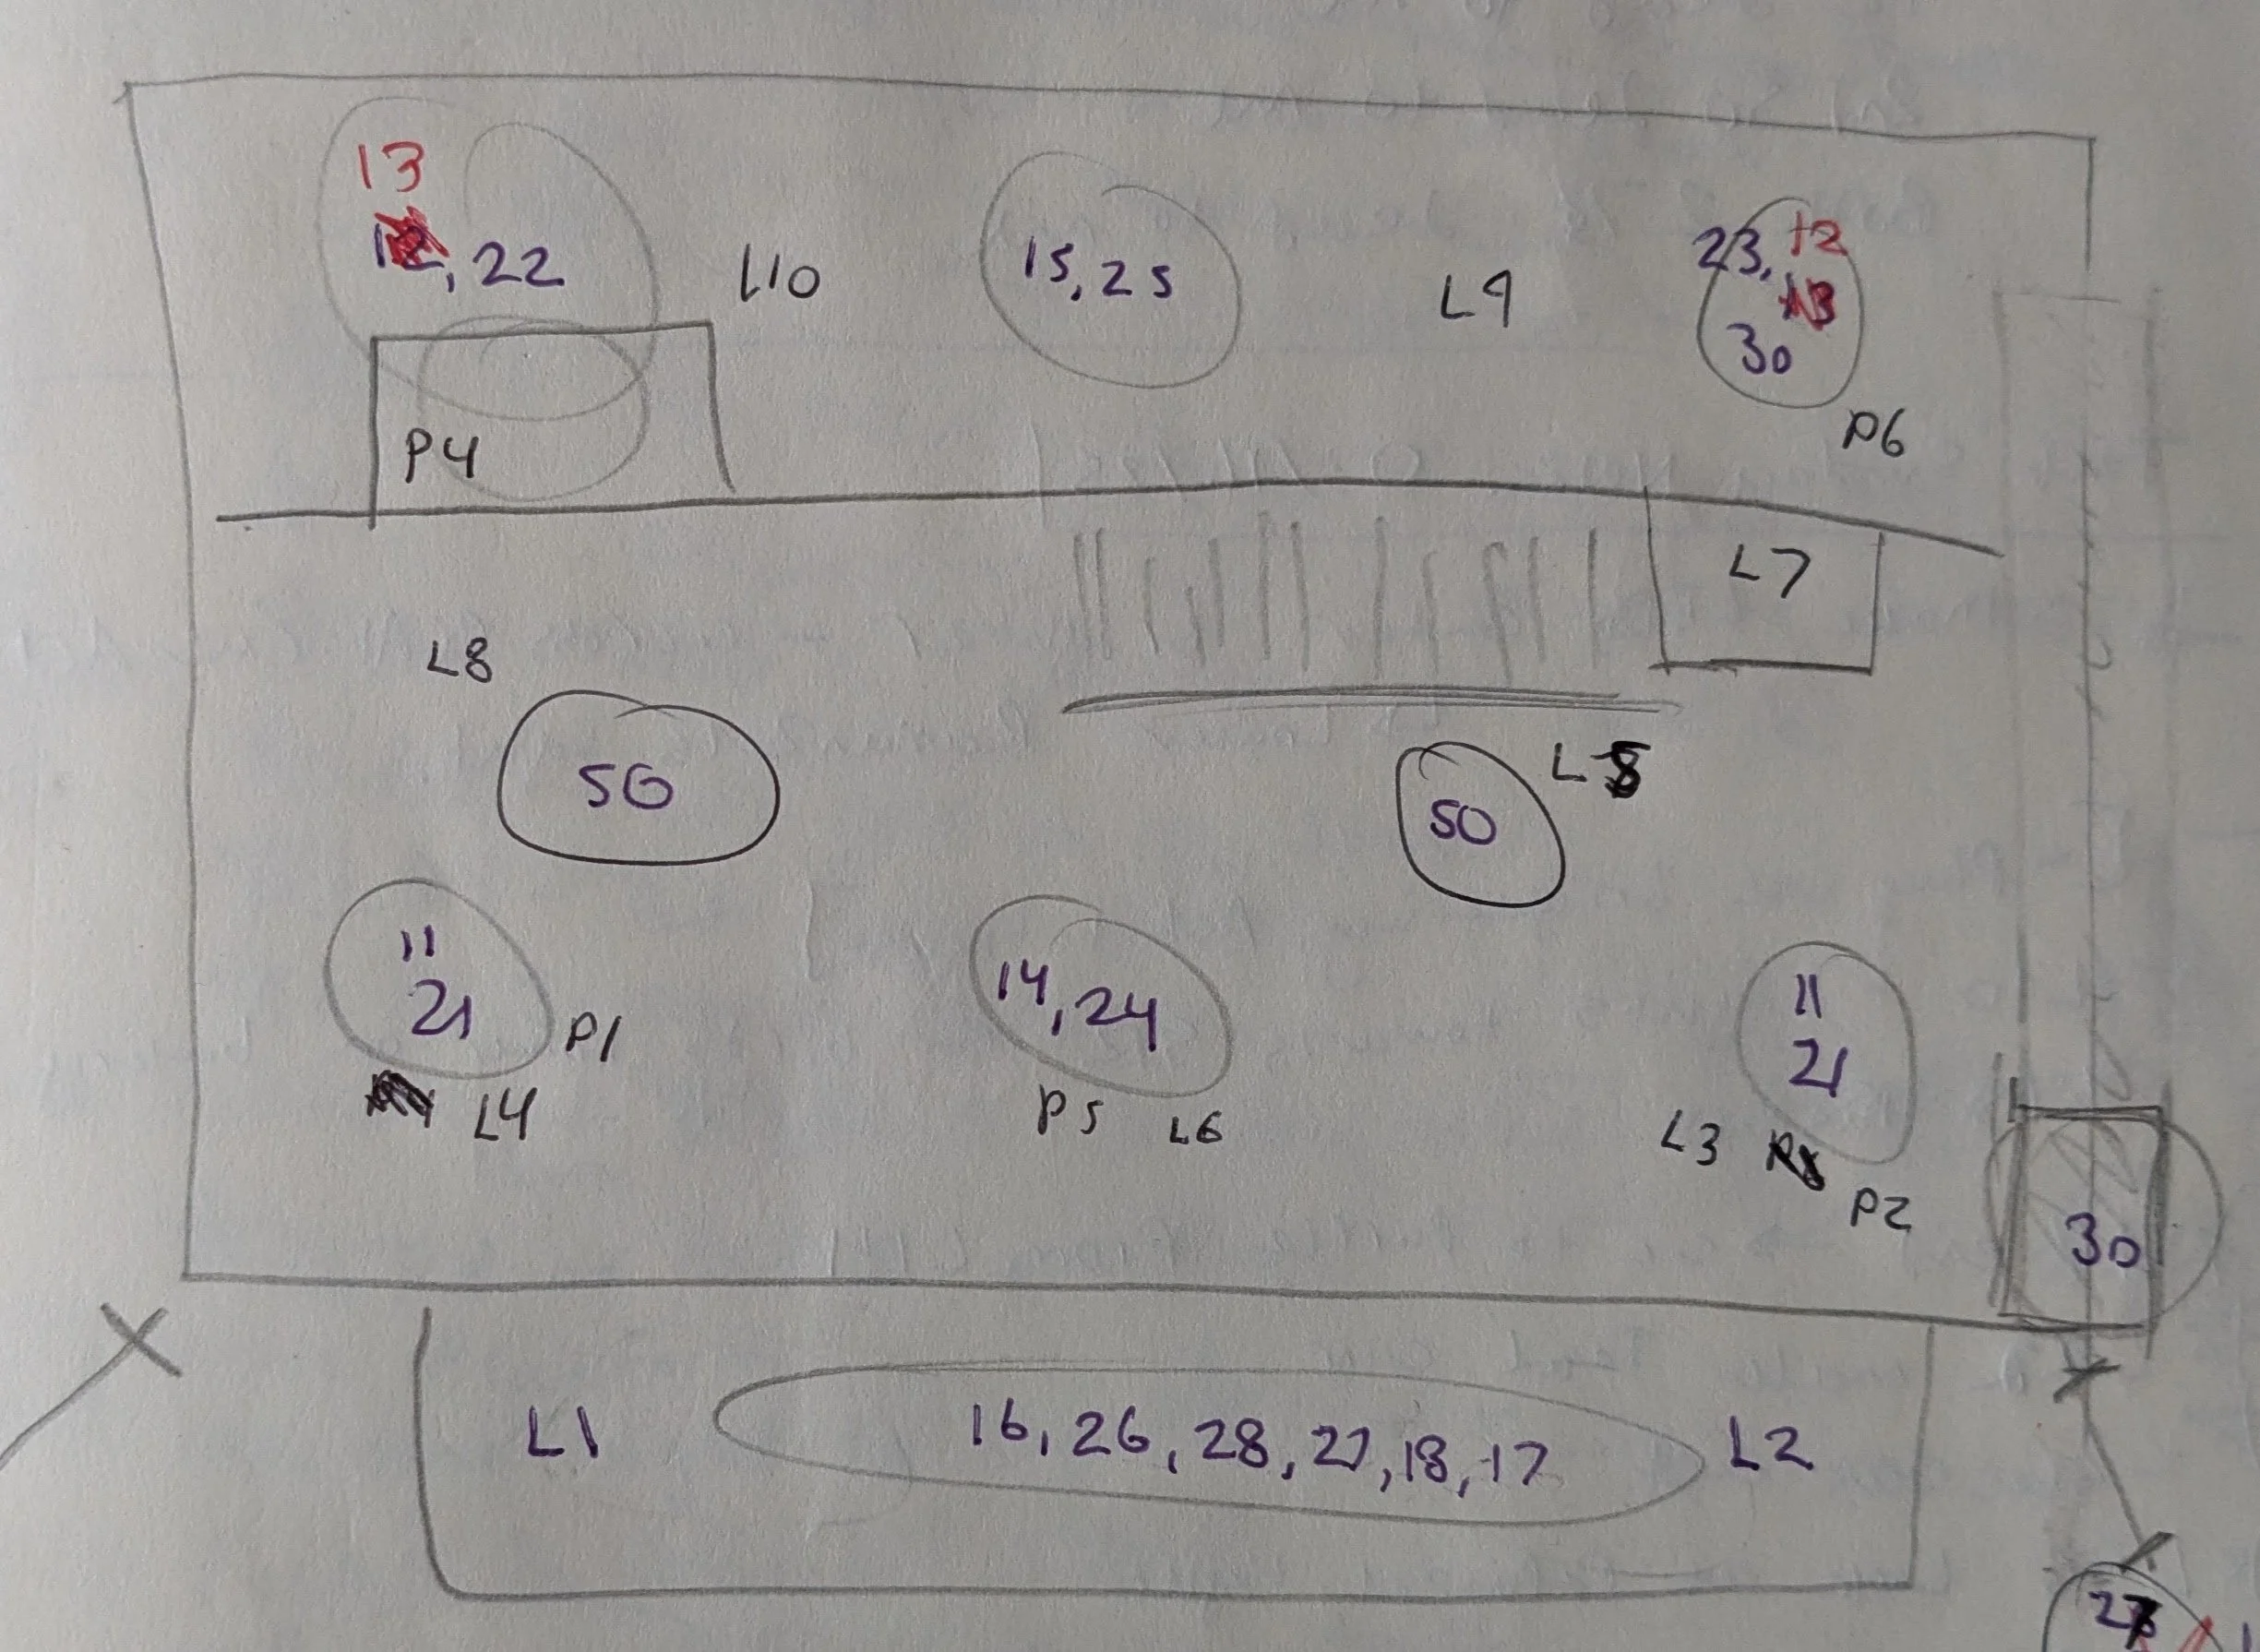 13
, 22
L10
15, 25
L9
23, 12
13
30
P6
P4
L7
L8
50
L5
50
11
21
P1
L4
14, 24
P5 L6
11
21
L3
P2
30
L1
16, 26, 28, 27, 18, 17
L2